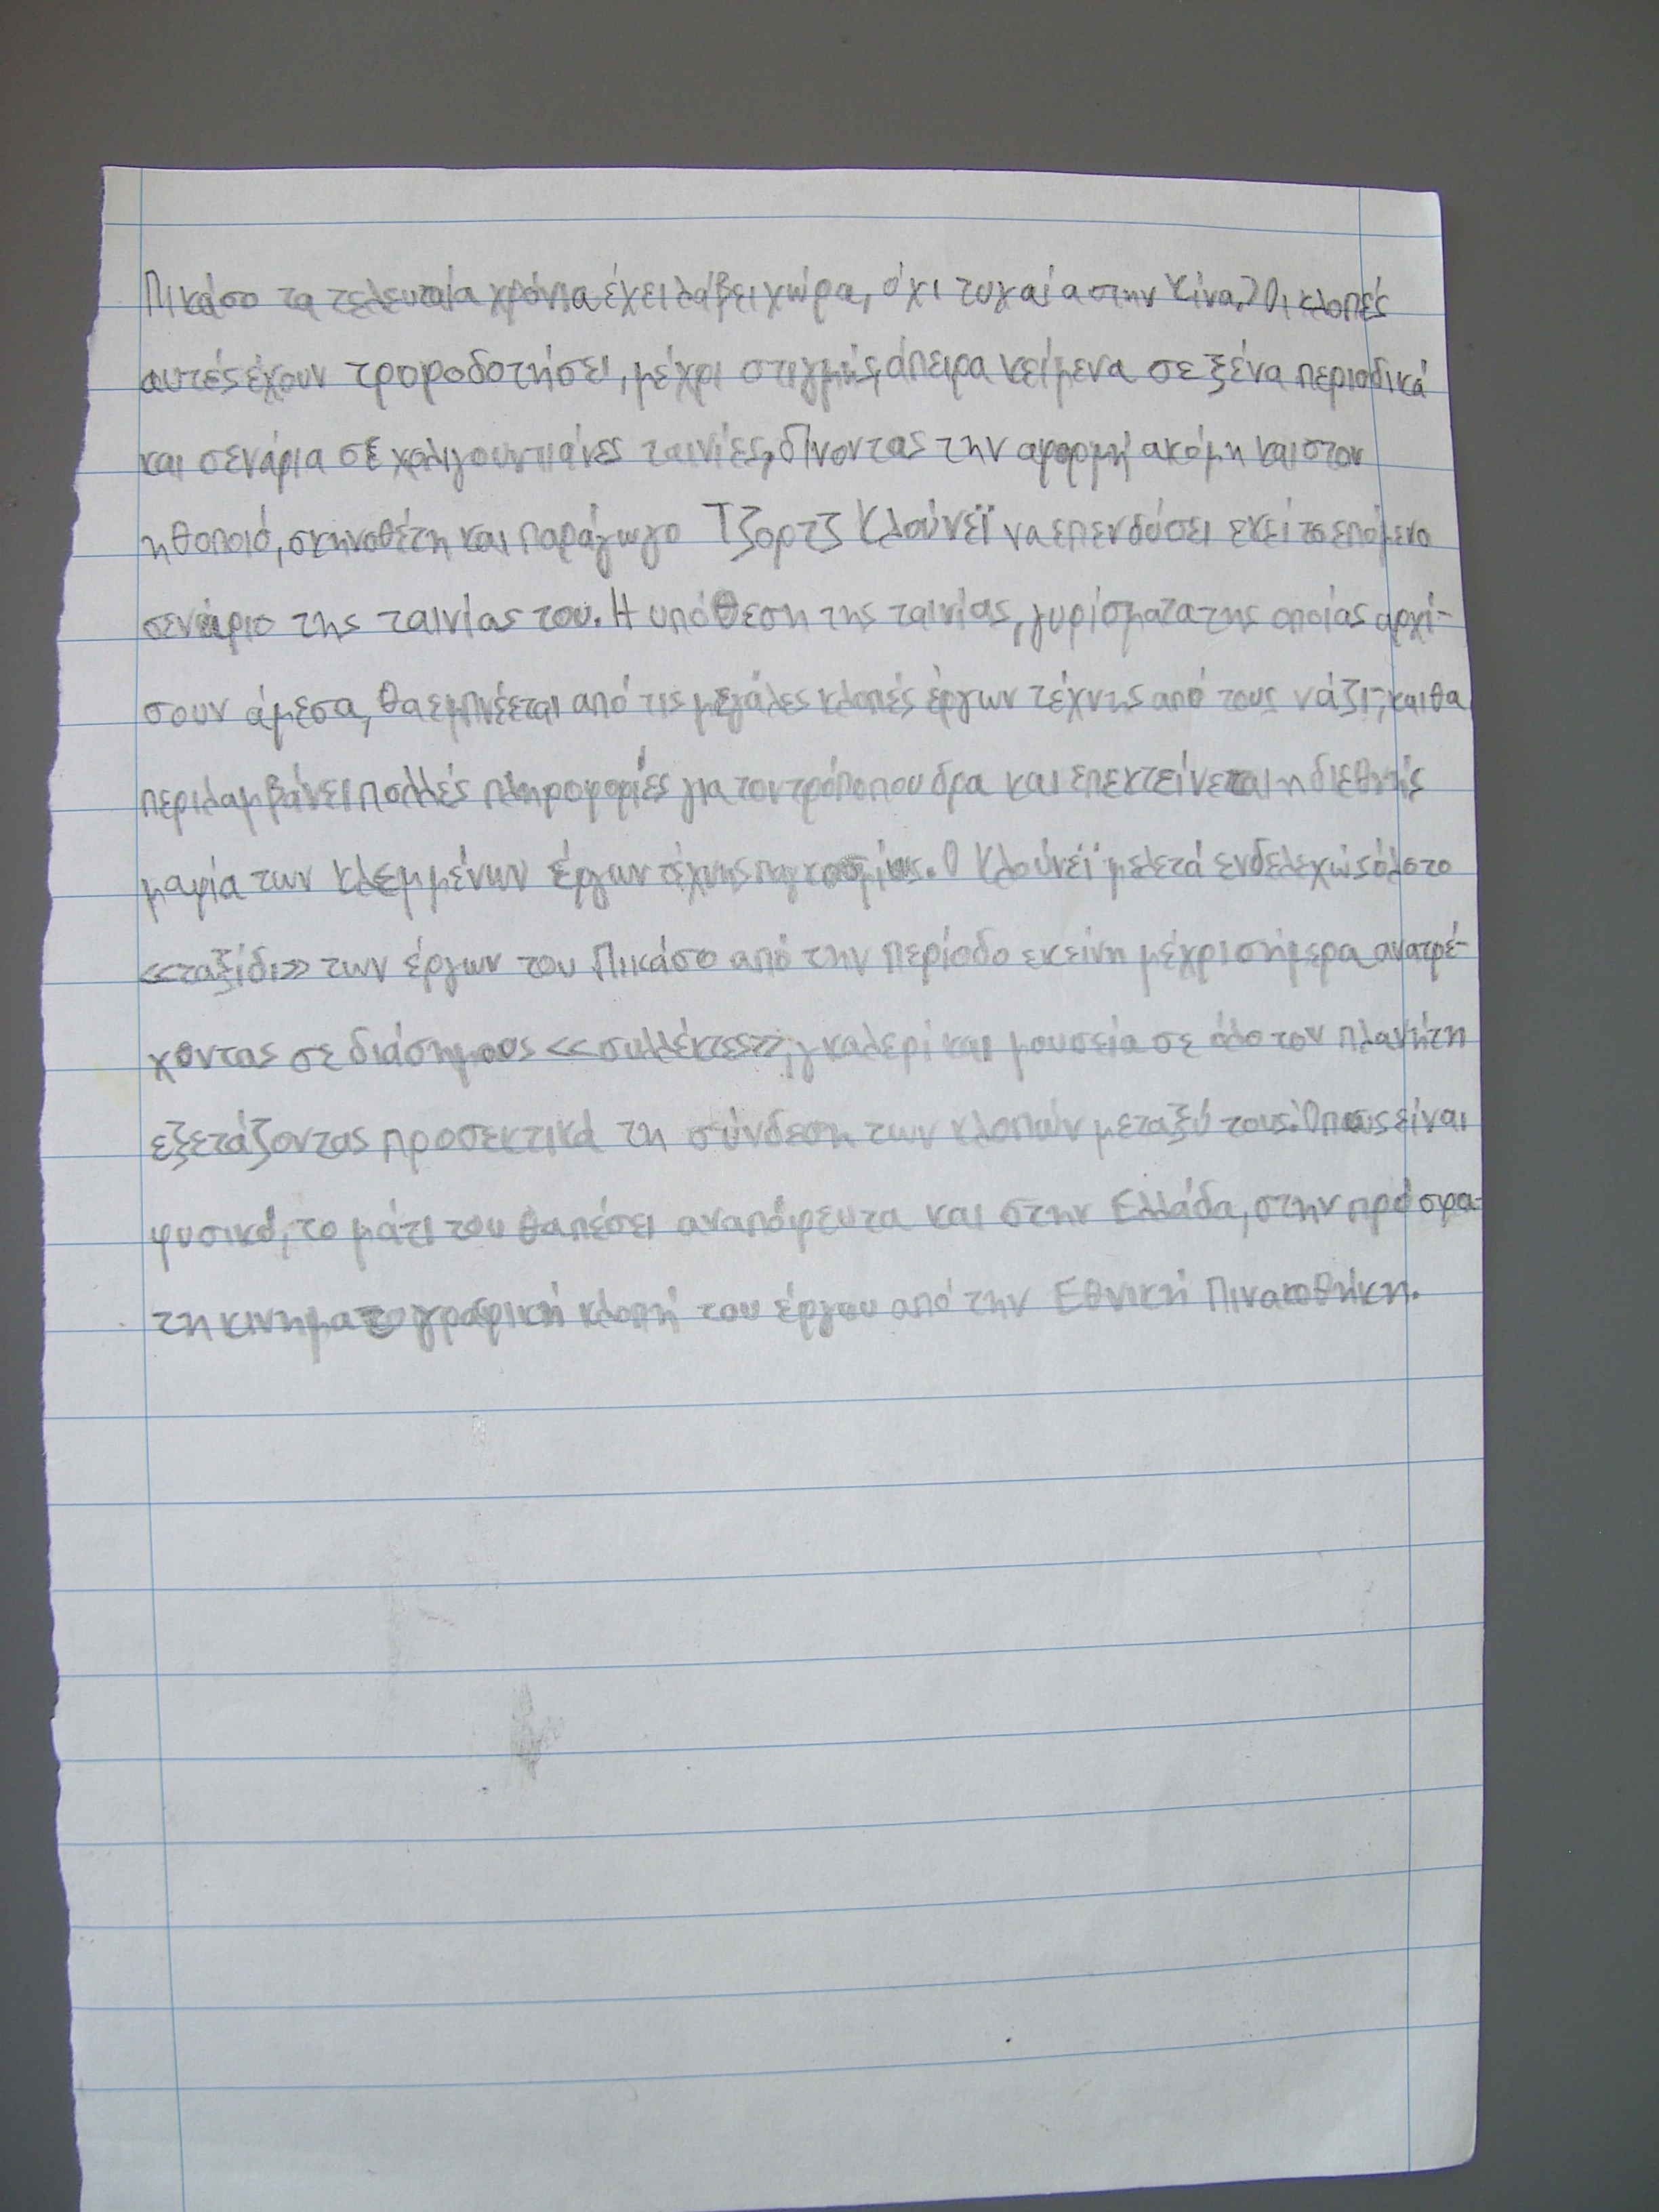 Πικάσο τα τελευταία χρόνια έχει λάβει χώρα, όχι τυχαία στην Κίνα. Οι κλοπές
αυτές έχουν τροφοδοτήσει, μέχρι στιγμής, άπειρα κείμενα σε ξένα περιοδικά
και σενάρια σε χολιγουντιανές ταινίες, δίνοντας την αφορμή ακόμη και στον
ηθοποιό, σκηνοθέτη και παράγωγο Τζορτζ Κλούνεϊ να επενδύσει εκεί το επόμενο
σενάριο της ταινίας του. Η υπόθεση της ταινίας, γυρίσματα της οποίας αρχί-
σουν άμεσα, θα εμπνέεται από τις μεγάλες κλοπές έργων τέχνης από τους νάζι, και θα
περιλαμβάνει πολλές πληροφορίες για τον τρόπο που δρα και επεκτείνεται η διεθνής
μαφία των κλεμμένων έργων τέχνης παγκοσμίως. Ο Κλούνεϊ μελετά ενδελεχώς όλο το
<<ταξίδι>> των έργων του Πικάσο από την περίοδο εκείνη μέχρι σήμερα ανατρέ-
χοντας σε διάσημους <<συλλέκτες>>, γκαλερί και μουσεία σε όλο τον πλανήτη
εξετάζοντας προσεκτικά τη σύνδεση των κλοπών μεταξύ τους. Όπως είναι
φυσικό, το μάτι του θα πέσει αναπόφευτα και στην Ελλάδα, στην πρόσφα-
τη κινηματογραφική κλοπή του έργου από την Εθνική Πινακοθήκη.